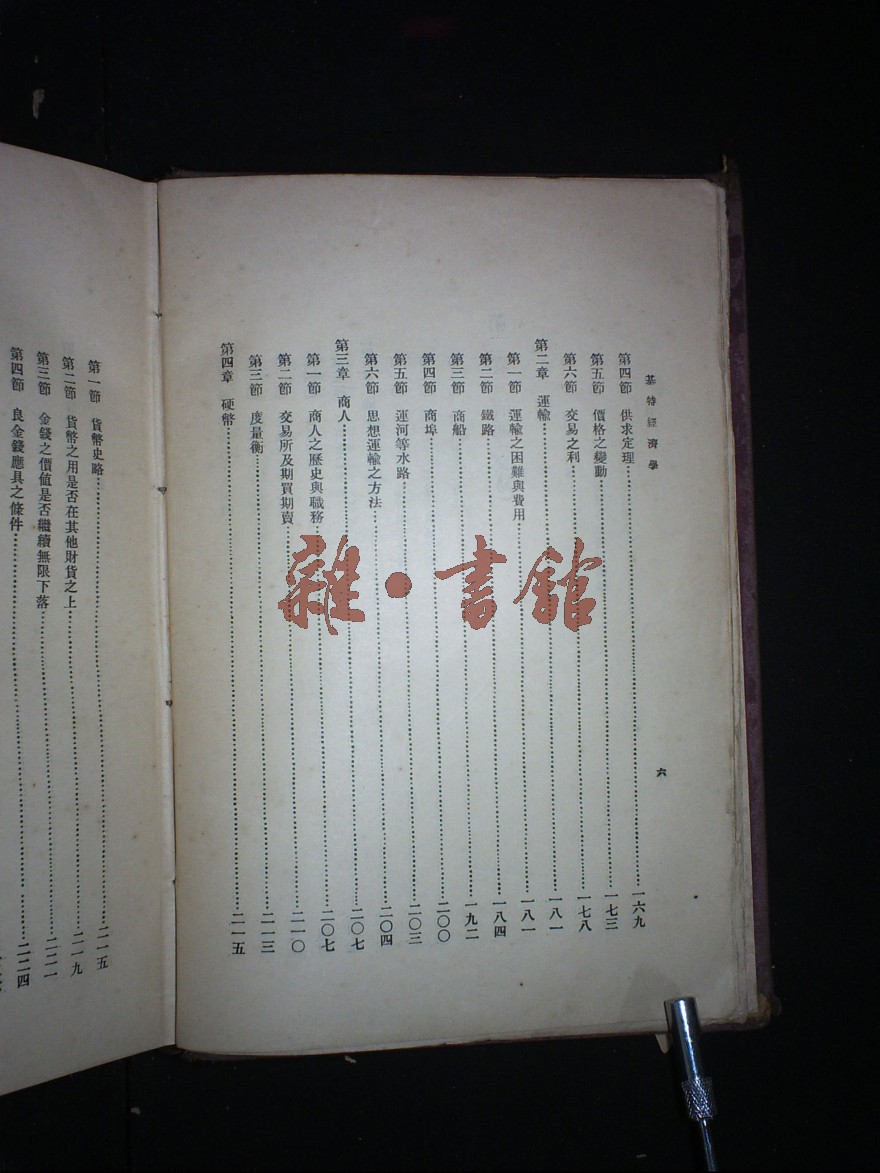 基特經濟學
六
第四節 供求定理……一六九
第五節 價格之變動……一七三
第六節 交易之利……一七八
第二章 運輸……一八一
第一節 運輸之困難與費用……一八一
第二節 鐵路……一八四
第三節 商船……一九二
第四節 商埠……二〇〇
第五節 運河等水路……二〇三
第六節 思想運輸之方法……二〇四
第三章 商人……二〇七
第一節 商人之歷史與職務……二〇七
第二節 交易所及期買期賣……二一〇
第三節 度量衡……二一三
第四章 硬幣……二一五
第一節 貨幣史略……二一五
第二節 貨幣之用是否在其他財貨之上……二一九
第三節 金錢之價值是否繼續無限下落……二二一
第四節 良金錢應具之條件……二二四
雜·書館